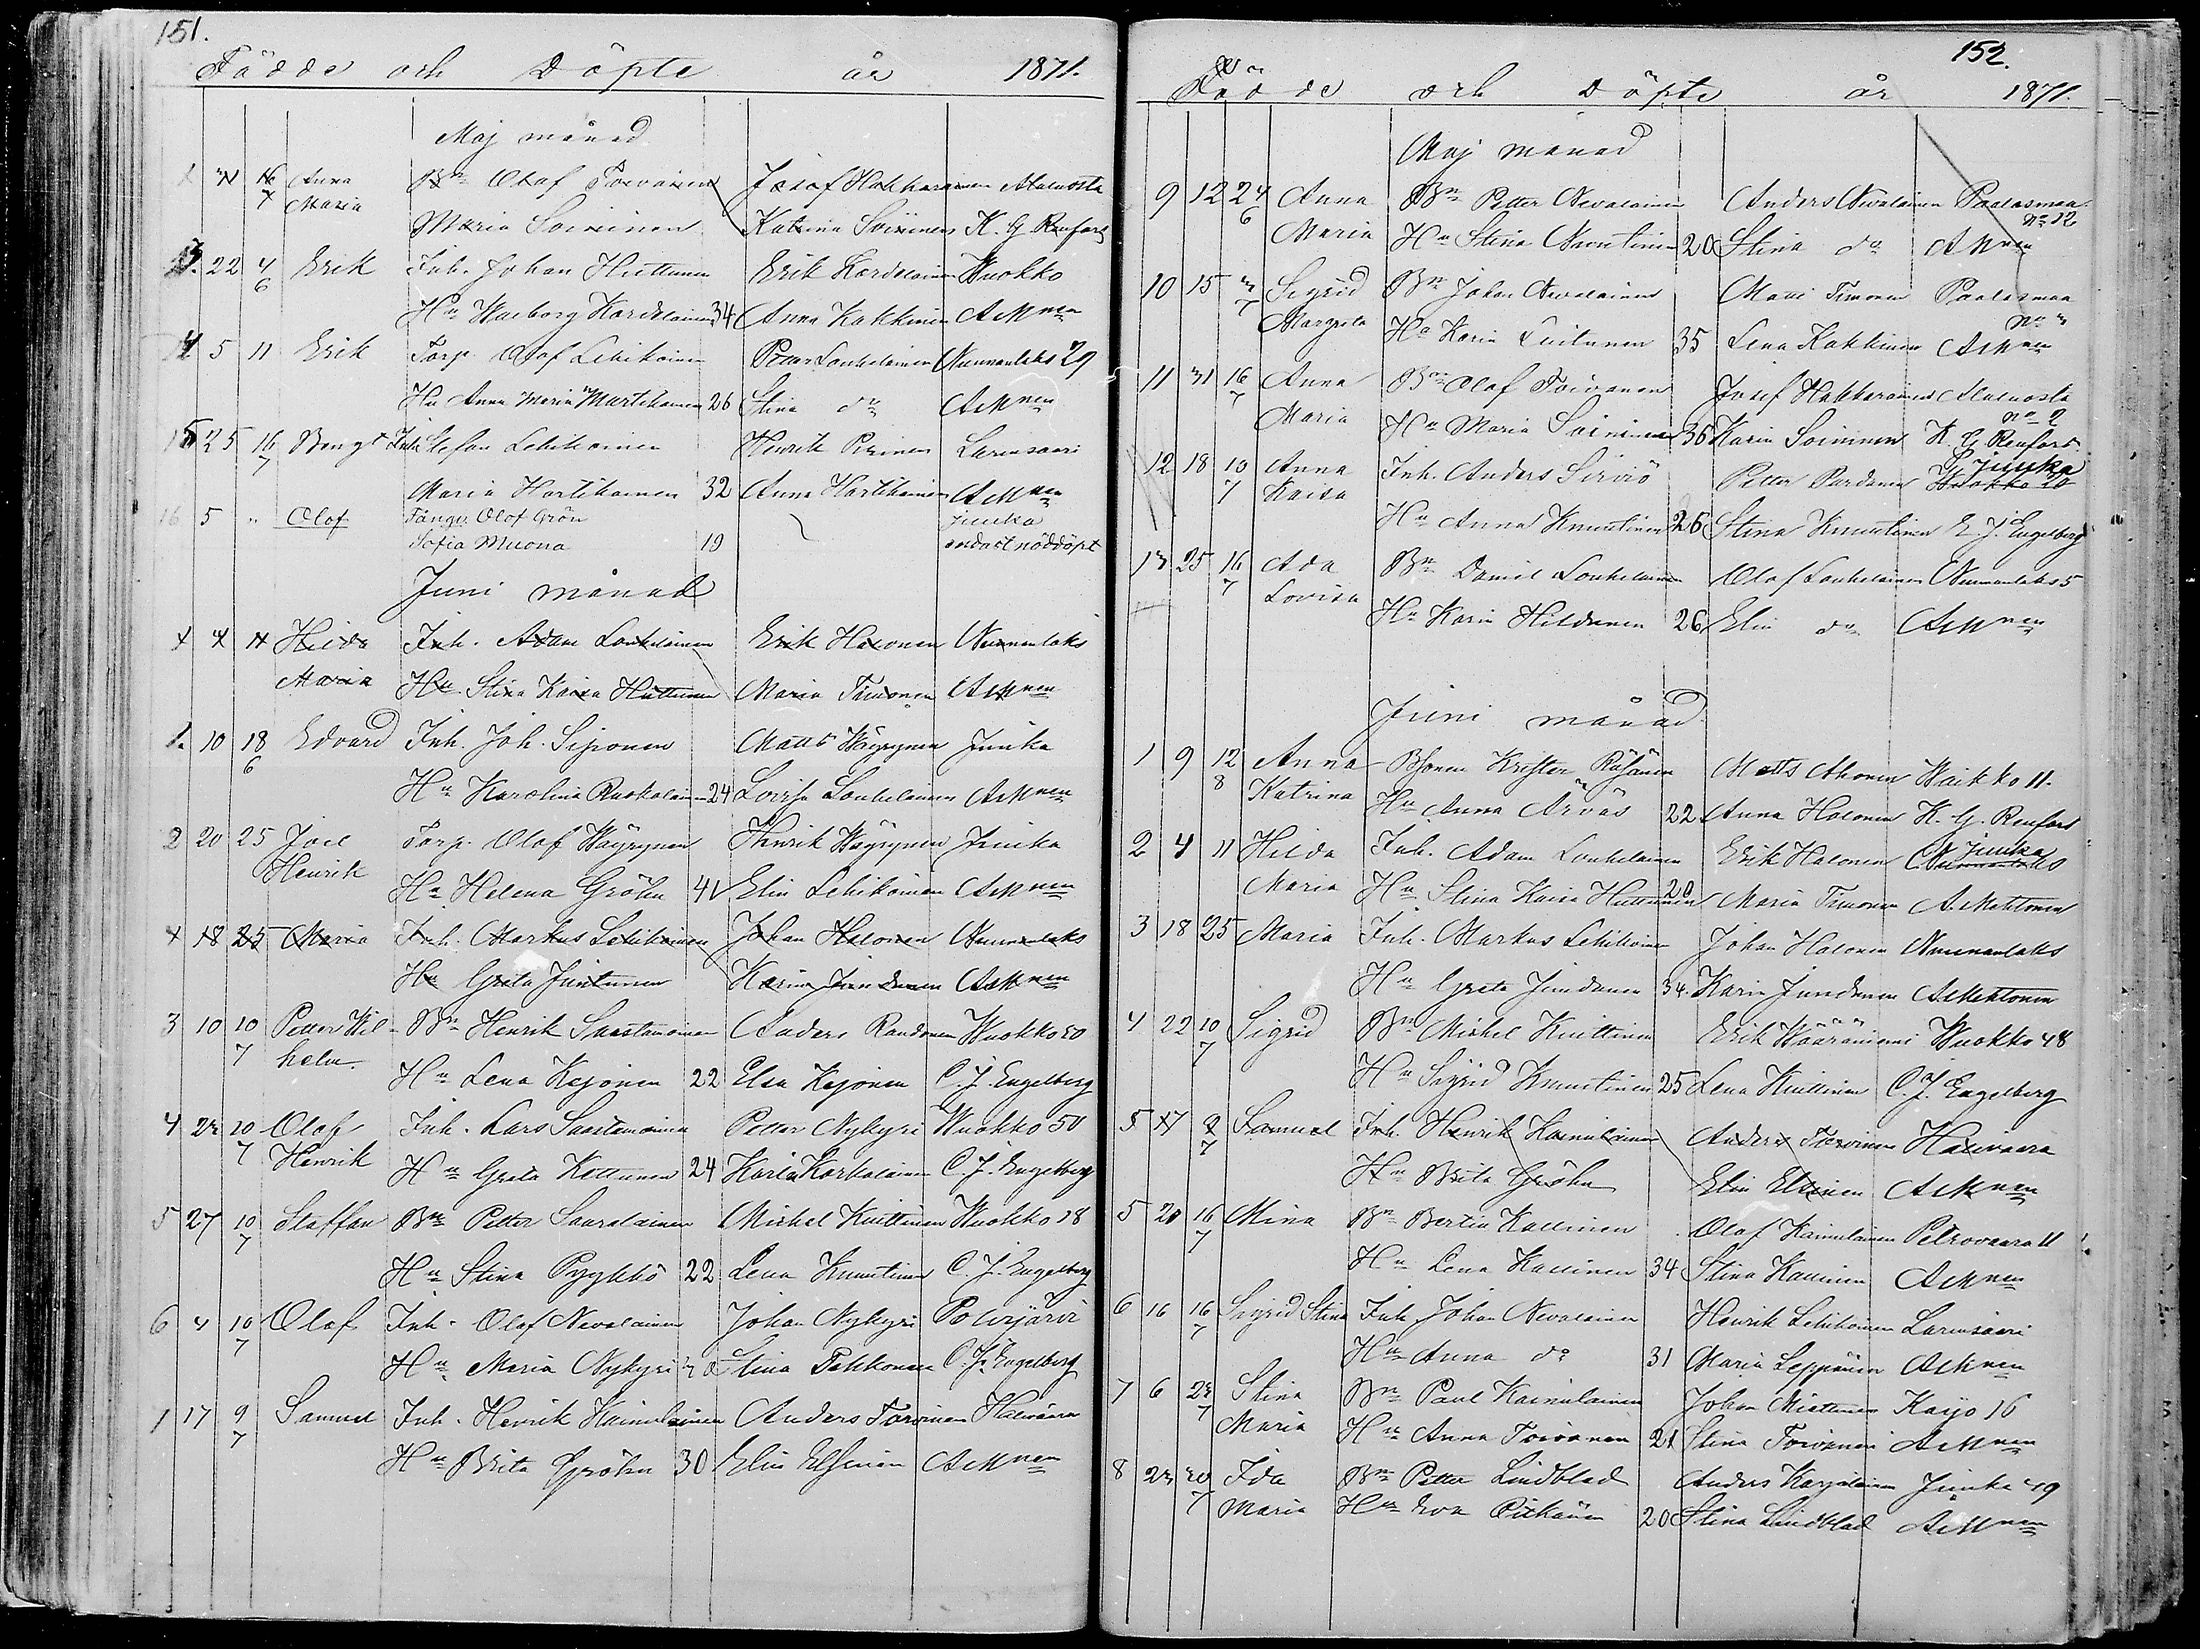 151.
Födde och Döpte år 1871.
Maj månad
31 16/7 Anna Bn Olof Toivanen Josef Hakkarainen Alaluosta
Maria Maria Soininen Katrina Soininen K. G. Renfors
3. 22 4/6 Erik Inh. Johan Huttunen Erik Kardelainen Wuokko
Hu Walborg Kardelainen 34 Anna Kakkinen AMnen
4 5 11 Erik Torp. Olof Lehikoinen Petter Loukelainen Nunnanlaks 29
Hu Anna Maria Martikainen 26 Stina do AMnen
15 25 16/7 Bengt Inh Stefan Lehikoinen Henrik Piirinen Larinsaari
Maria Hartikainen 32 Anna Hartikainen AMnen
16 5 " Olof Fångv. Olof Grön Juuka
Sofia Muona 19 endast nöddöpt
Juni månad
4 11 Hilda Inh. Adam Loukelainen Erik Halonen Nunnanlaks
Maria Hu Stina Kaisa Huttunen Maria Timonen AMnen
1. 10 18/6 Edvard Inh. Joh. Siponen Matts Wäyrynen Juuka
Hu Karolina Ruokolainen 24 Lovisa Loukelainen AMnen
2 20 25 Joel Torp. Olof Wäyrynen Henrik Wäyrynen Juuka
Henrik Hu Helena Gröhn 41 Elin Lehikoinen AMnen
18 25 Maria Inh. Markus Lehikoinen Johan Halonen Nunnanlaks
Hu Greta Juntunen Karin Jundunen AMnen
3 10 10/7 Petter Wil- Bn Henrik Saastamoinen Anders Randonen Wuokko 50
helm Hu Lena Kejonen 22 Elsa Kejonen C. J. Engelberg
4 23 10/7 Olof Inh. Lars Saastamoinen Petter Nykyri Wuokko 50
Henrik Hu Greta Kettunen 24 Karin Korkalainen C. J. Engelberg
5 27 10/7 Staffan Bn Petter Saarelainen Mickel Kuittinen Wuokko 18
Hu Stina Pyykkö 22 Lena Knuutinen C. J. Engelberg
6 4 10/7 Olof Inh. Olof Nevalainen Johan Nykyri Polvijärvi
Hu Maria Nykyri Stina Pakkonen C. J. Engelberg
1 17 9/7 Samuel Inh. Henrik Kainulainen Anders Torvinen Halivaara
Hu Brita Gröhn 30 Elin Elsinen AMnen
152.
Födde och Döpte år 1871.
Maj månad
9 12 24/6 Anna Bn Petter Nevalainen Anders Nevalainen Paalasmaa
No 12
Maria Hu Stina Nuutinen 20 Stina do AMnen
10 15 3/7 Sigrid Bn Johan Nevalainen Matti Timonen Paalasmaa
No 3
Margreta Hu Karin Luitunen 35 Lena Kakkinen AMnen
11 31 16/7 Anna Bn Olof Toivanen Josef Hakkarainen Alaluosta
No 2
Maria Hu Maria Soininen 36 Karin Soininen K. G. Renfors
12 18 10/7 Anna Inh. Anders Sirviö Petter Pardanen Juuka
Kaisa Wuokko 20
Hu Anna Knuutinen 26 Stina Knuutinen C. J. Engelberg
13 25 16/7 Ada Bn Daniel Loukelainen Olof Loukelainen Nunnanlaks 5
Lovisa
Hu Karin Hildunen 26 Elin do AMnen
Juni månad
1 9 12/8 Anna Bsonen Krister Räsänen Matts Ahonen Waikko 11.
Katrina Hu Anna Ärväs 22 Anna Halonen K. G. Renfors
2 4 11 Hilda Inh. Adam Loukelainen Erik Halonen Juuka
Nunnanlaks
Maria Hu Stina Kaisa Huttunen 20 Maria Timonen A. Mahlonen
3 18 25 Maria Inh. Markus Lehikoinen Johan Halonen Nunnanlaks
Hu Greta Jundunen 34. Karin Jundunen
4 22 10/7 Sigrid Bn Mickel Kuittinen Erik Wääräniemi Wuokko 48
Hu Sigrid Knuutinen 25 Lena Kuittinen C. J. Engelberg
5 17 9/7 Samuel Inh. Henrik Kainulainen Anders Torvinen Halivaara
Hu Brita Gröhn Elin Elsinen AMnen
5 20 16/7 Mina Bn Bertin Kallinen Olof Kainulainen Petrovaara 11
Hu Lena Kallinen 34 Stina Kallinen AMnen
6 16 16/7 Sigrid Stina Inh Johan Nevalainen Henrik Lehikoinen Larinsaari
Hu Anna do 31 Maria Leppänen AMnen
7 6 23/7 Stina Bn Paul Kainulainen Johan Miettinen Kajo 16
Maria Hu Anna Toivanen 21 Stina Toivanen AMnen
8 23 30/7 Ida Bn Petter Lindblad Anders Karjalainen Juuka 49
Maria Hu Eva Pitkänen 20 Stina Lindblad AMnen